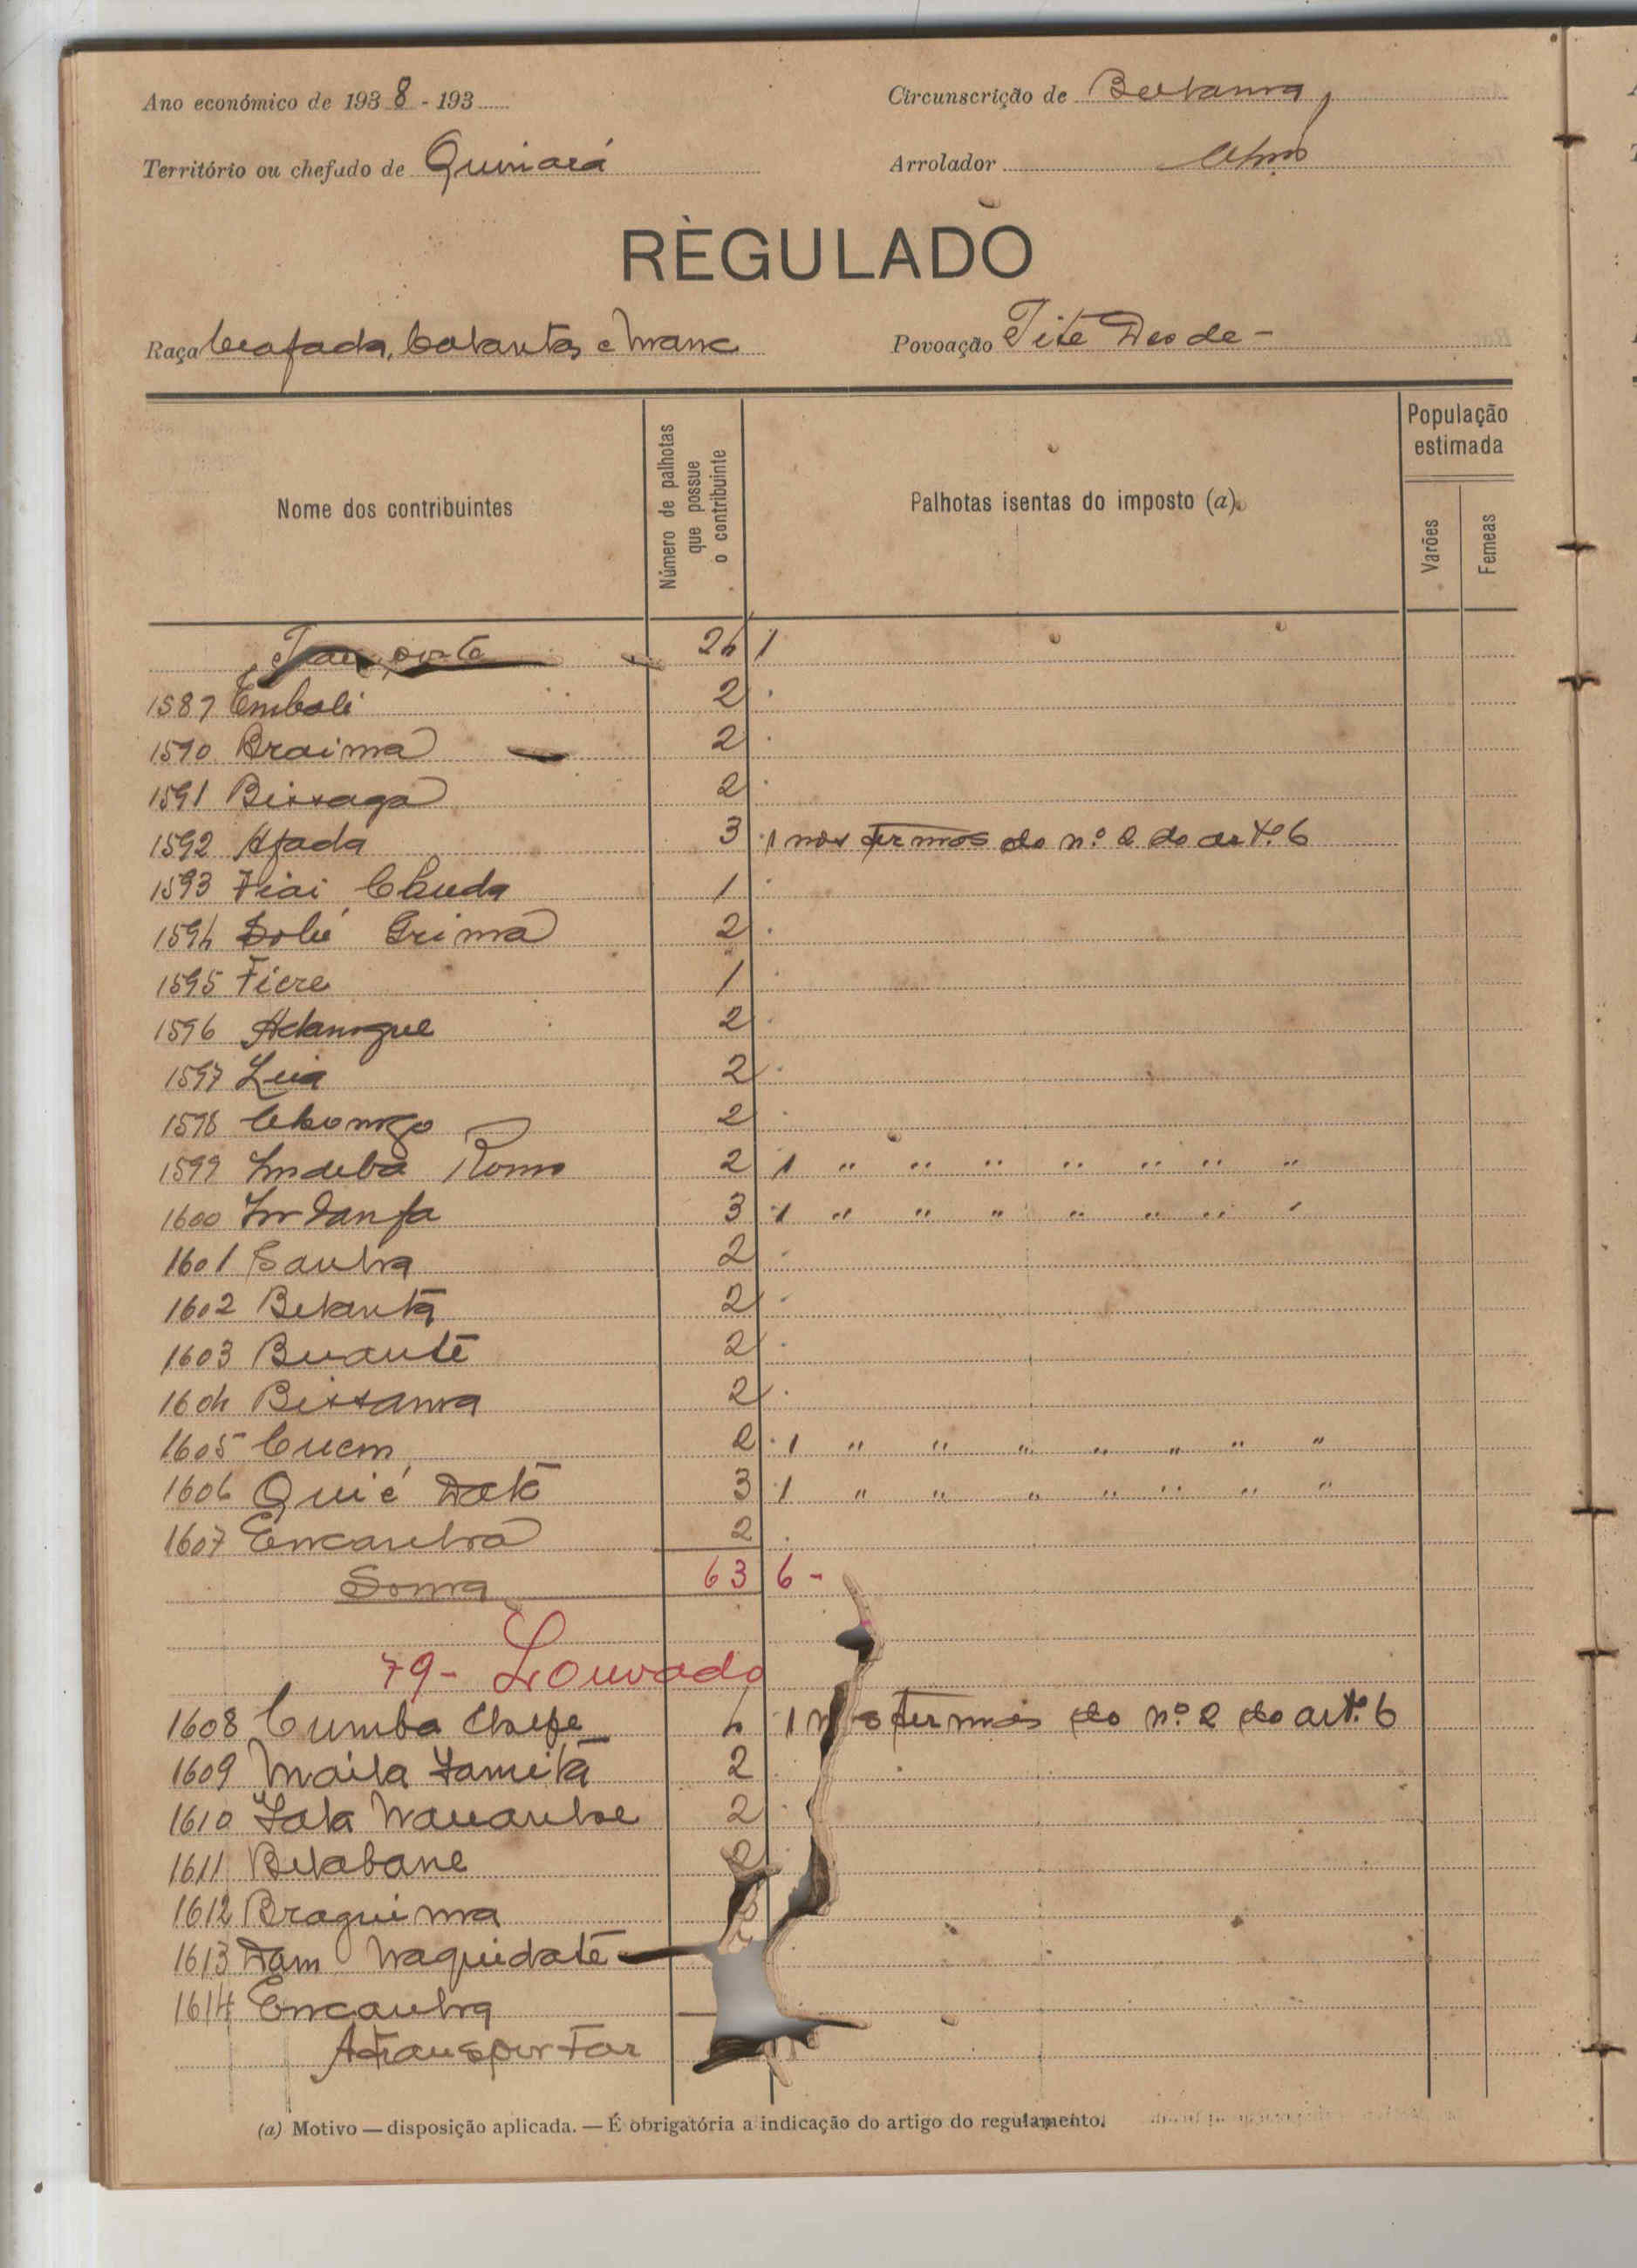 Ano económico de 193 8 - 193
Circunscrição de
Território ou chefado de Quinará
Arrolador
RÈGULADO
Raça Beafada, Balantas e Manc
Povoação Tite Deo de -
Nome dos contribuintes
Número de palhotas que possue o contribuinte
Palhotas isentas do imposto (a)
População estimada
Varões
Femeas
Transporte 24 1
1589 Embali 2
1590 Braima 2
1591 Bissaga 2
1592 Afada 3 1 nos termos do n.º 2 do artº. 6
1593 Fiai Chuda 1
1594 Solé Grima 2
1595 Fiere 1
1596 2
1597 Leia 2
1598 2
1599 Indeba Roma 2 1 " " " " " " "
1600 Intanfa 3 1 " " " " " " "
1601 Santra 2
1602 Betantã 2
1603 Buantê 2
1604 Bissanra 2
1605 Cuem 2 1 " " " " " " "
1606 Quié Datê 3 1 " " " " " " "
1607 Encantra 2
Soma 63 6 -
79 - Louvado
1608 Cumba Chefe 4 1 termos do n.º 2 do artº. 6
1609 Maila Iamitã 2
1610 Iala 2
1611 Belabane 2
1612 Braguima
1613 Dam Naquidatê
1614 Encantra
A transportar
(a) Motivo — disposição aplicada. — É obrigatória a indicação do artigo do regulamento.